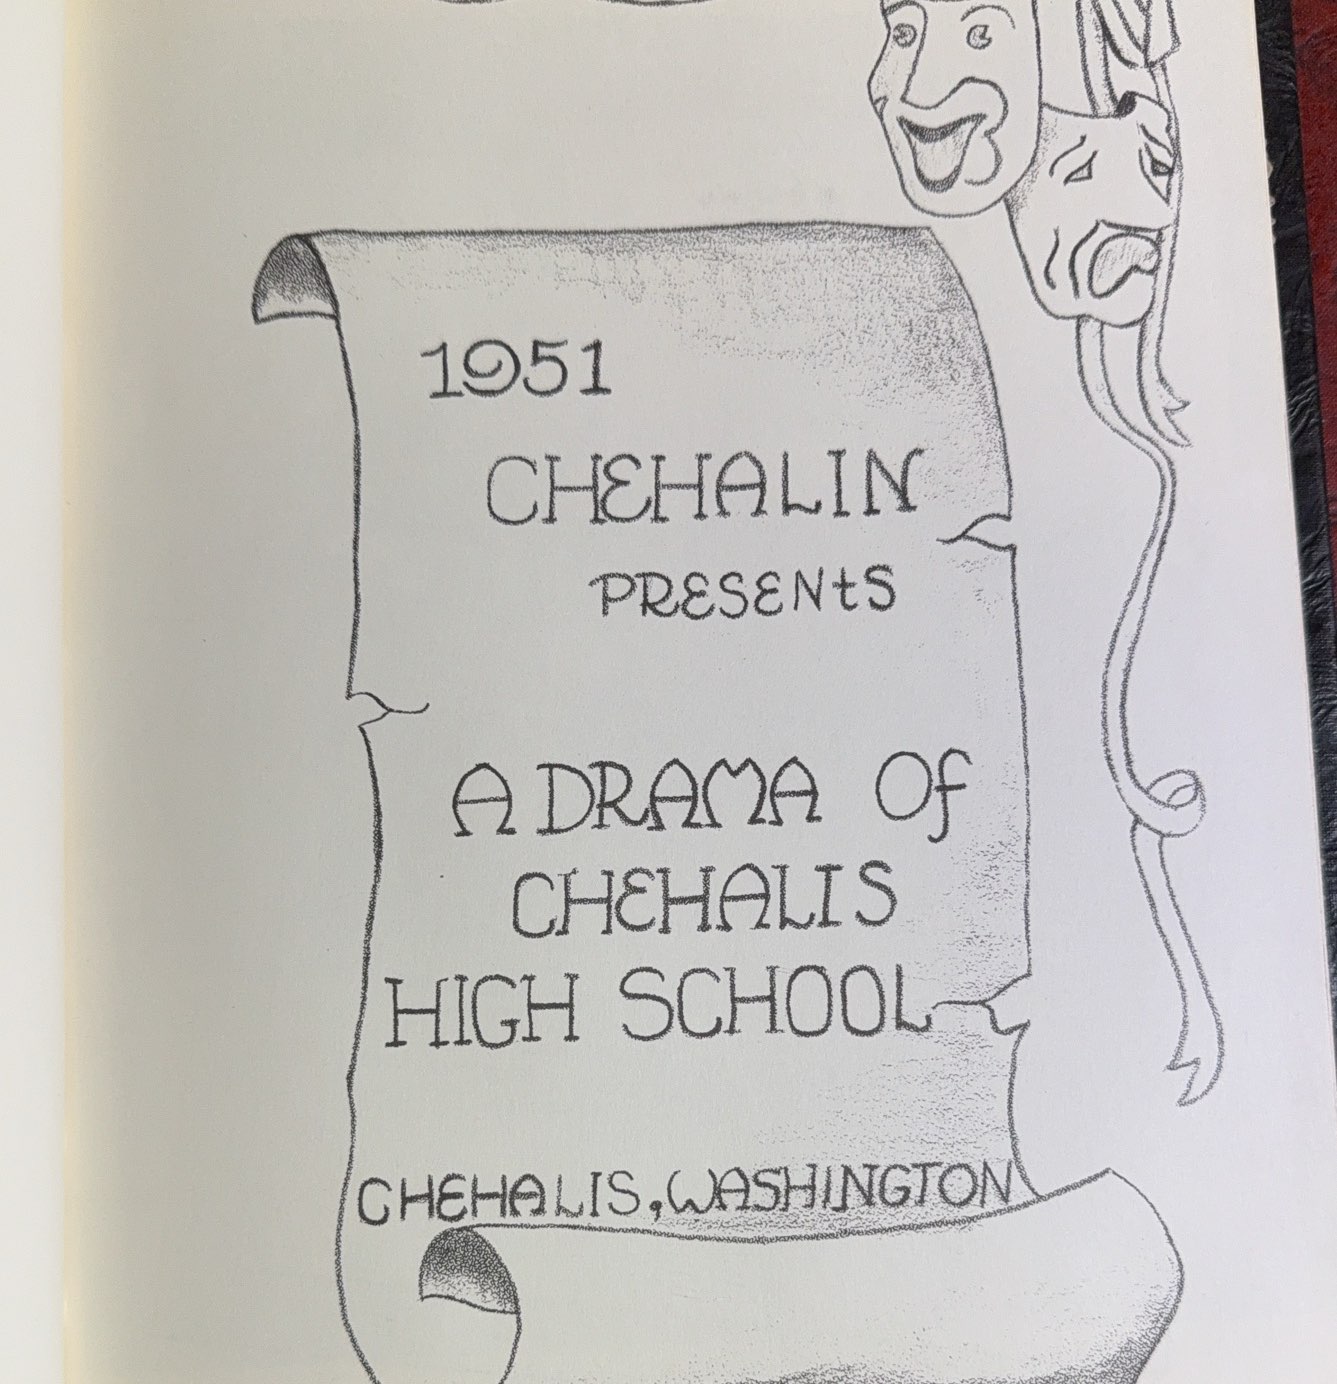 1951
CHEHALIN
PRESENtS
A DRAMA Of
CHEHALIS
HIGH SCHOOL
CHEHALIS, WASHINGTON